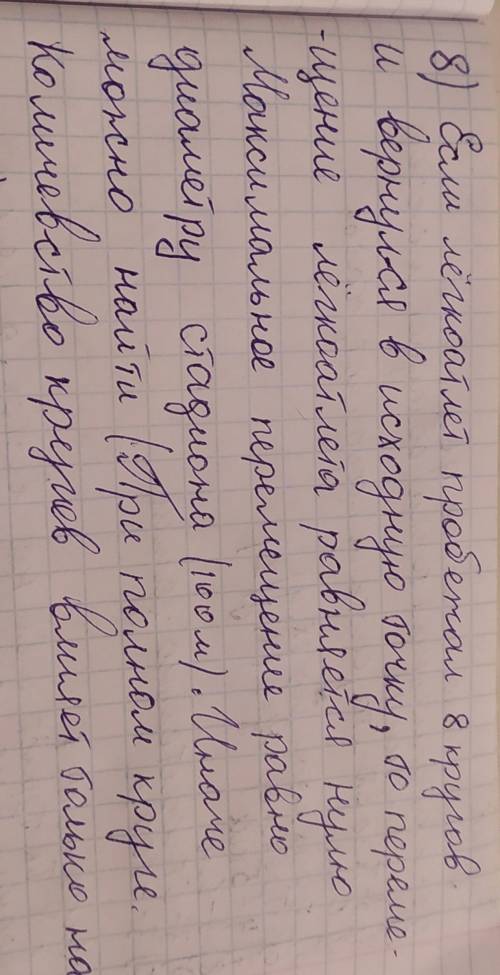 8) Если лёгкоатлет пробежал 8 кругов
и вернулся в исходную точку, то переме-
-щение лёгкоатлета равняется нулю
Максимальное перемещение равно
диаметру стадиона (100 м). Иначе
можно найти (При полном круге.
Количевство кругов влияет только на